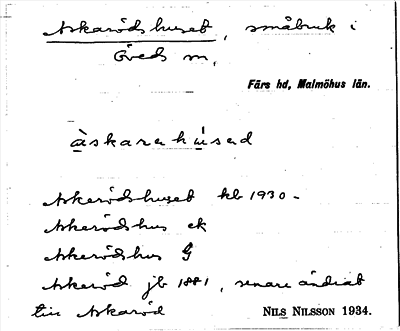 Askarödshuset, småbruk i
Öveds sn,
Färs hd, Malmöhus län.
àskarahúsad
Askerödshuset kb 1930-
Askerödshus ek
Askerödshus G
Askeröd jb 1881, senare ändrat
till Askaröd
NILS NILSSON 1934.